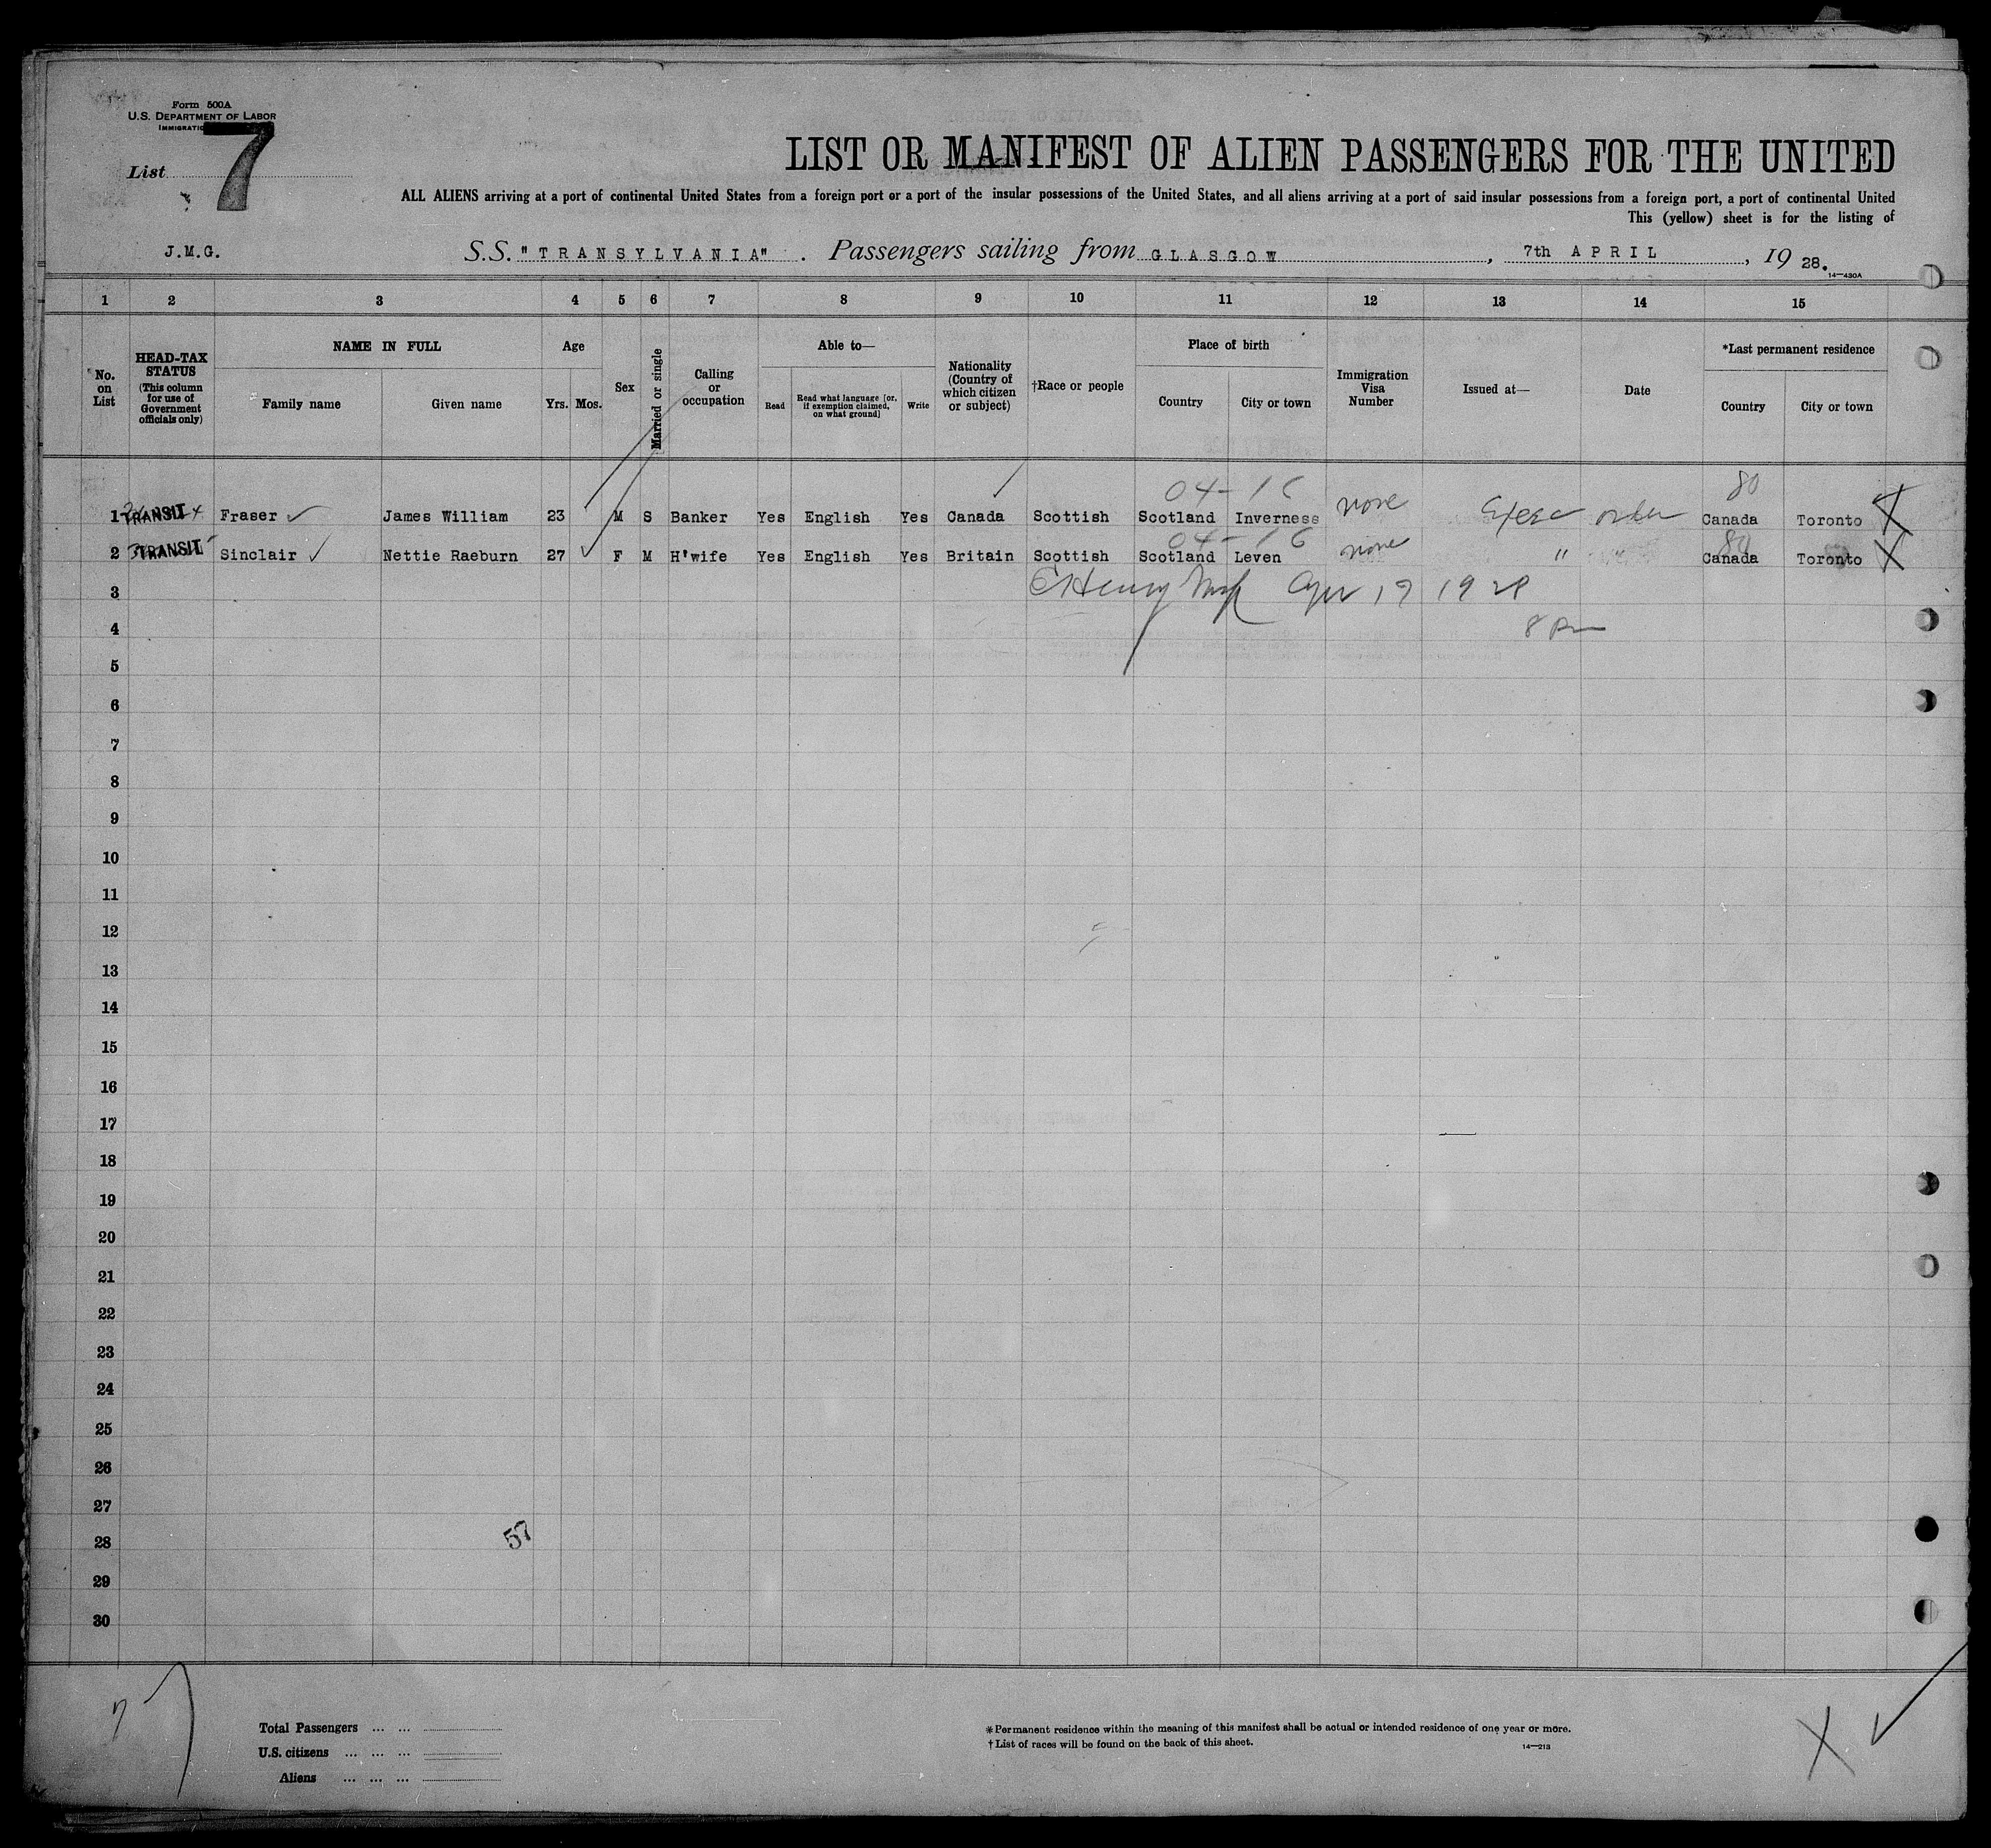 Form 500A
U.S. DEPARTMENT OF LABOR
List 7
LIST OR MANIFEST OF ALIEN PASSENGERS FOR THE UNITED
ALL ALIENS arriving at a port of continental United States from a foreign port or a port of the insular possessions of the United States, and all aliens arriving at a port of said insular possessions from a foreign port, a port of continental United
This (yellow) sheet is for the listing of
J.M.G. S.S. "TRANSYLVANIA" . Passengers sailing from GLASGOW, 7th APRIL, 1928.
14—430A
1 2 3 4 5 6 7 8 9 10 11 12 13 14 15
No. on List
HEAD-TAX STATUS (This column for use of Government officials only)
NAME IN FULL
Family name Given name
Age
Yrs. Mos.
Sex
Married or single
Calling or occupation
Able to—
Read Read what language [or, if exemption claimed, on what ground] Write
Nationality (Country of which citizen or subject)
†Race or people
Place of birth
Country City or town
Immigration Visa Number
Issued at—
Date
*Last permanent residence
Country City or town
04-16 80
1 TRANSIT Fraser James William 23 M S Banker Yes English Yes Canada Scottish Scotland Inverness none Exec order Canada Toronto X
04-16 80
2 TRANSIT Sinclair Nettie Raeburn 27 F M H'wife Yes English Yes Britain Scottish Scotland Leven none " " Canada Toronto X
3
4 8 Pm
5
6
7
8
9
10
11
12
13
14
15
16
17
18
19
20
21
22
23
24
25
26
27
28 57
29
30
Total Passengers ... ...
U.S. citizens ... ... ...
Aliens ... ... ...
*Permanent residence within the meaning of this manifest shall be actual or intended residence of one year or more.
†List of races will be found on the back of this sheet.
14—213
X